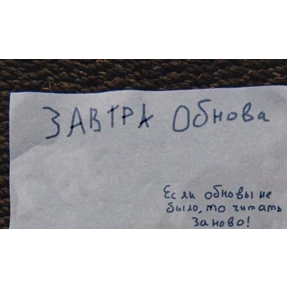 ЗАВТРА Обнова
Если обновы не
было, то читать
заново!